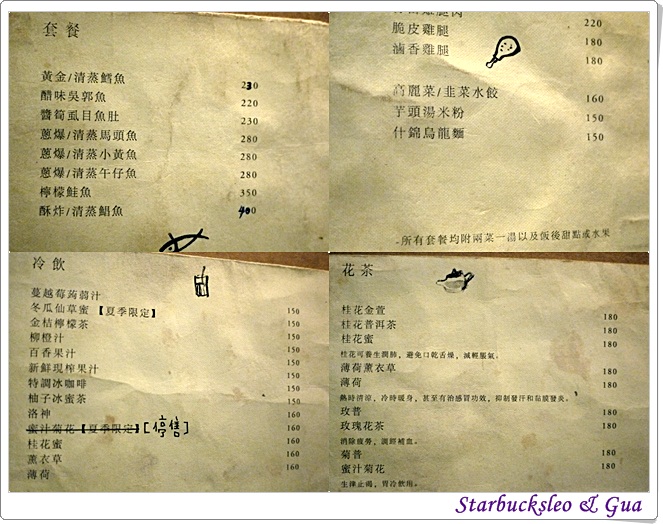 套餐
黃金/清蒸鱈魚 230
醋味吳郭魚 220
醬筍虱目魚肚 230
蔥爆/清蒸馬頭魚 280
蔥爆/清蒸小黃魚 280
蔥爆/清蒸午仔魚 280
檸檬鮭魚 350
酥炸/清蒸鯧魚 400
脆皮雞腿 220
滷香雞腿 180
180
高麗菜/韭菜水餃 160
芋頭湯米粉 150
什錦烏龍麵 150
所有套餐均附兩菜一湯以及飯後甜點或水果
冷飲
蔓越莓蒟蒻汁
冬瓜仙草蜜【夏季限定】 150
金桔檸檬茶 150
柳橙汁 150
百香果汁 150
新鮮現榨果汁 150
特調冰咖啡 150
柚子冰蜜茶 150
洛神 150
蜜汁菊花【夏季限定】[停售] 160
桂花蜜 160
薰衣草 160
薄荷 160
花茶
桂花金萱 180
桂花普洱茶 180
桂花蜜 180
桂花可養生潤肺，避免口乾舌燥，減輕脹氣。
薄荷薰衣草 180
薄荷 180
熱時清涼，冷時暖身，甚至有治感冒功效，抑制發汗和黏膜發炎。
玫普 180
玫瑰花茶 180
消除疲勞，調經補血。
菊普 180
蜜汁菊花 180
生津止喝，胃冷飲用。
Starbucksleo & Gua